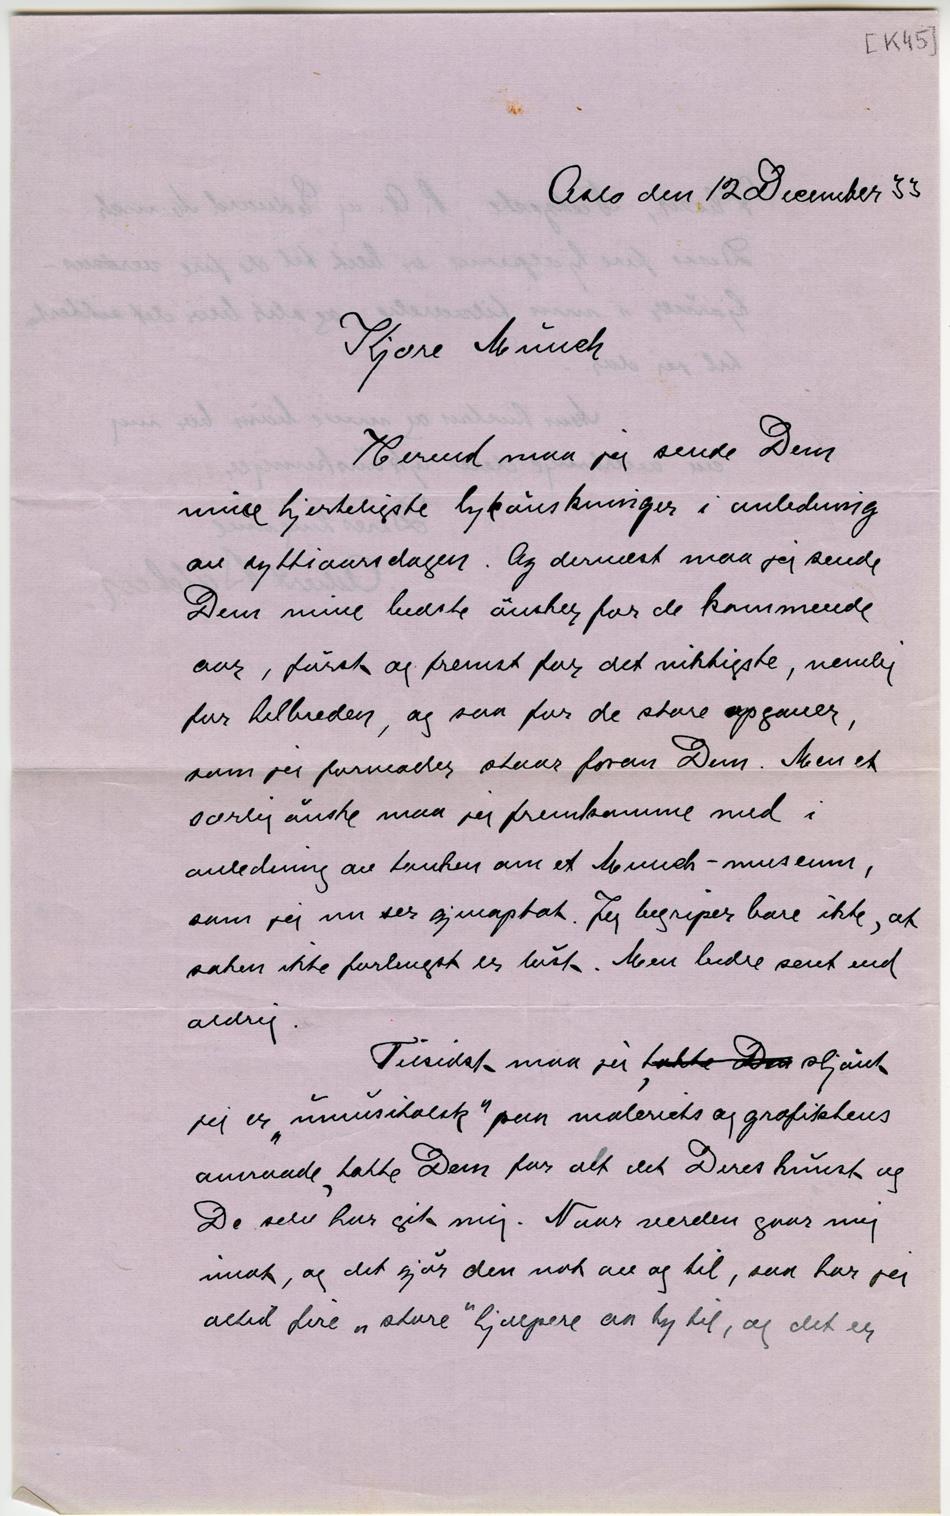 [K45]
Oslo den 12 December 33
Kjære Münch
Herved maa jeg sende Dem
mine hjerteligste lykönskninger i anledning
av syttiaarsdagen. Og dernæst maa jeg sende
Dem mine bedste önsker for de kommende
aar, först og fremst for det viktigste, nemlig
for helbreden, og saa for de store opgaver,
som jeg formoder staar foran Dem. Men et
særlig önske maa jeg fremkomme med i
anledning av tanken om et Munch-museum,
som jeg nu ser gjenoptat. Jeg begriper bare ikke, at
saken ikke forlengst er löst. Men bedre sent end
aldrig.
Tilsidst maa jeg takke Dem skjönt
jeg er „ümüsikalsk" paa maleriets og grafikkens
omraade, takke Dem for alt det Deres künst og
De selv har git mig. Naar verden gaar mig
imot, og det gjör den nok av og til, saa har jeg
altid fire „store" hjælpere aa ty til, og det er